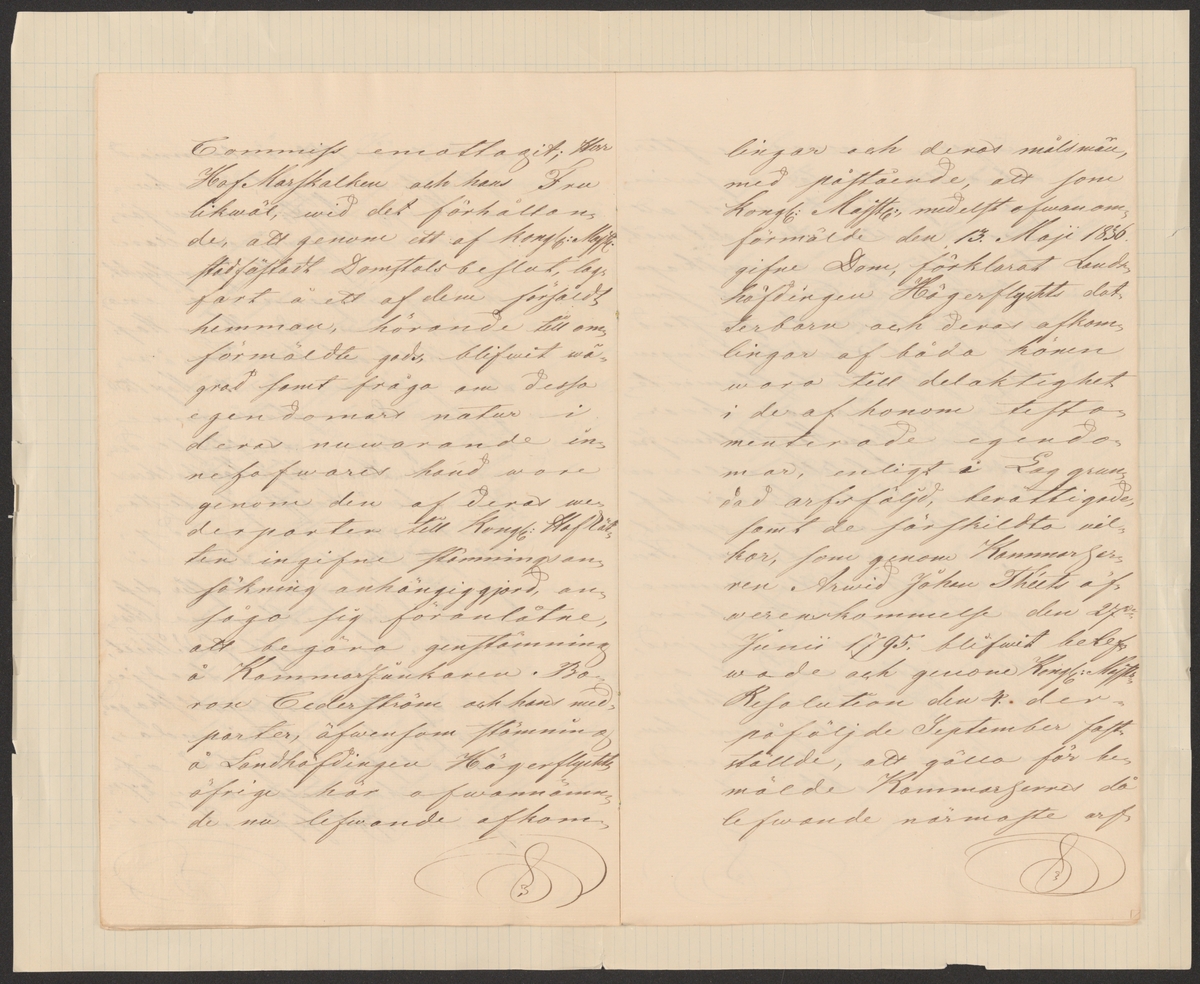 Commiss emottagit; Herr
HofMarskalken och hans Fru
likwäl, wid det förhållan-
de, att genom ett af Kongl: Majst:
stadsfästadt Domstols beslut, lag-
fart å ett af dem försåldt
hemman, hörande till om-
förmäldte gods, blifwit wä-
grad samt fråga om dessa
egendomars natur i
deras nuwarande in-
nehafwares hand wore
genom den af deras we-
derparter till Kongl: HofRät-
ten ingifne stämningsan-
sökning anhängiggjord, an-
sågo sig föranlåtne,
att begära genstämning
å Kammarjunkaren Ba-
ron Cederström och hans med-
parter, äfwensom stämning
å Landshöfdingen Hägerflychts
öfrige här ofwannämn-
de nu lefwande afkom-
lingar och deras målsmän,
med påstående, att som
Kongl: Majst:, medelst ofwanom-
förmälde den 13. Maji 1836.
gifne Dom, förklarat Lands-
höfdingen Hägerflychts dot-
terbarn och deras afkom-
lingar af båda könen
wara till delaktighet
i de af honom testa-
menterade egendo-
mar, enligt i Lag grun-
dad arfsföljd, berättigade,
samt de särskildta wil-
kor, som genom Kammarher-
ren Arwid Johan Théets öf-
werenskommelse den 27de
Junii 1795. blifwit betef-
wade och genom Kongl: Majsts
Resolution den 4. der-
påföljde September fast-
ställde, att gälla för be-
mälde Kammarherres då
lefwande närmaste arf-